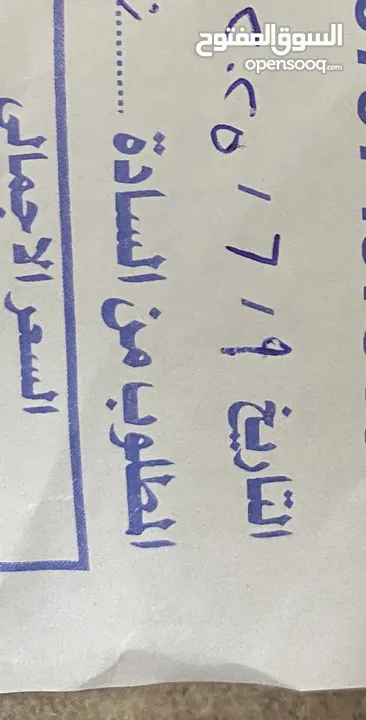 السوق المفتوح
opensooq.com
التاريخ ٩ / ٦ / ٢٠٢٥
المطلوب من السادة ..........
السعر الاجمالي